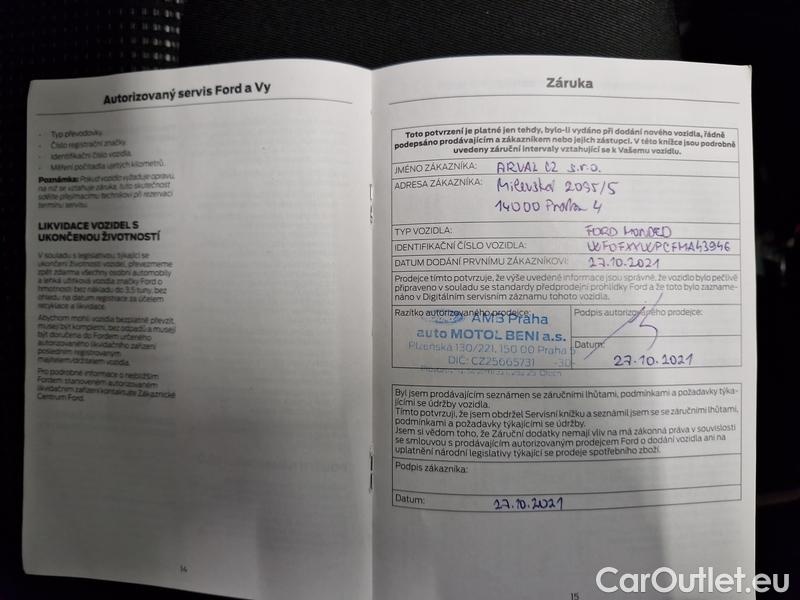 Autorizovaný servis Ford a Vy
- Typ převodovky.
- Číslo registrační značky.
- Identifikační číslo vozidla.
- Měření počítadla ujetých kilometrů.
Poznámka: Pokud vozidlo vyžaduje opravu,
na niž se vztahuje záruka, tuto skutečnost
sdělte přejímacímu technikovi při rezervaci
termínu servisu.
LIKVIDACE VOZIDEL S
UKONČENOU ŽIVOTNOSTÍ
V souladu s legislativou, týkající se
ukončení životnosti vozidel, převezmeme
zpět zdarma všechny osobní automobily
a lehká užitková vozidla značky Ford o
hmotnosti bez nákladu do 3,5 tuny, bez
ohledu na datum registrace za účelem
recyklace a likvidace.
Abychom mohli vozidla bezplatně převzít,
musejí být kompletní, bez odpadů a musejí
být doručena do Fordem určeného
autorizovaného likvidačního zařízení
posledním registrovaným
majitelem/držitelem vozidla.
Pro podrobné informace o nejbližším
Fordem stanoveném autorizovaném
likvidačním zařízení kontaktujte Zákaznické
Centrum Ford.
14
Záruka
Toto potvrzení je platné jen tehdy, bylo-li vydáno při dodání nového vozidla, řádně
podepsáno prodávajícím a zákazníkem nebo jejich zástupci. V této knížce jsou podrobně
uvedeny záruční intervaly vztahující se k Vašemu vozidlu.
JMÉNO ZÁKAZNÍKA: ARVAL CZ s.r.o.
ADRESA ZÁKAZNÍKA: Milevská 2095/5
14000 Praha 4
TYP VOZIDLA: FORD MONDEO
IDENTIFIKAČNÍ ČÍSLO VOZIDLA: WF0FXXWPCFMA43946
DATUM DODÁNÍ PRVNÍMU ZÁKAZNÍKOVI: 27.10.2021
Prodejce tímto potvrzuje, že výše uvedené informace jsou správné, že vozidlo bylo pečlivě
připraveno v souladu se standardy předprodejní prohlídky Ford a že toto bylo zazname-
náno v Digitálním servisním záznamu tohoto vozidla.
Razítko autorizovaného prodejce: Podpis autorizovaného prodejce:
AM3 Praha
auto MOTOL BENI a.s.
Plzeňská 130/221, 150 00 Praha 5
DIČ: CZ25665731 -30-
Datum: 27.10.2021
Byl jsem prodávajícím seznámen se záručními lhůtami, podmínkami a požadavky týka-
jícími se údržby vozidla.
Tímto potvrzuji, že jsem obdržel Servisní knížku a seznámil jsem se se záručními lhůtami,
podmínkami a požadavky týkajícími se údržby.
Jsem si vědom toho, že Záruční dodatky nemají vliv na má zákonná práva v souvislosti
se smlouvou s prodávajícím autorizovaným prodejcem Ford o dodání vozidla ani na
uplatnění národní legislativy týkající se prodeje spotřebního zboží.
Podpis zákazníka:
Datum: 27.10.2021
15
CarOutlet.eu